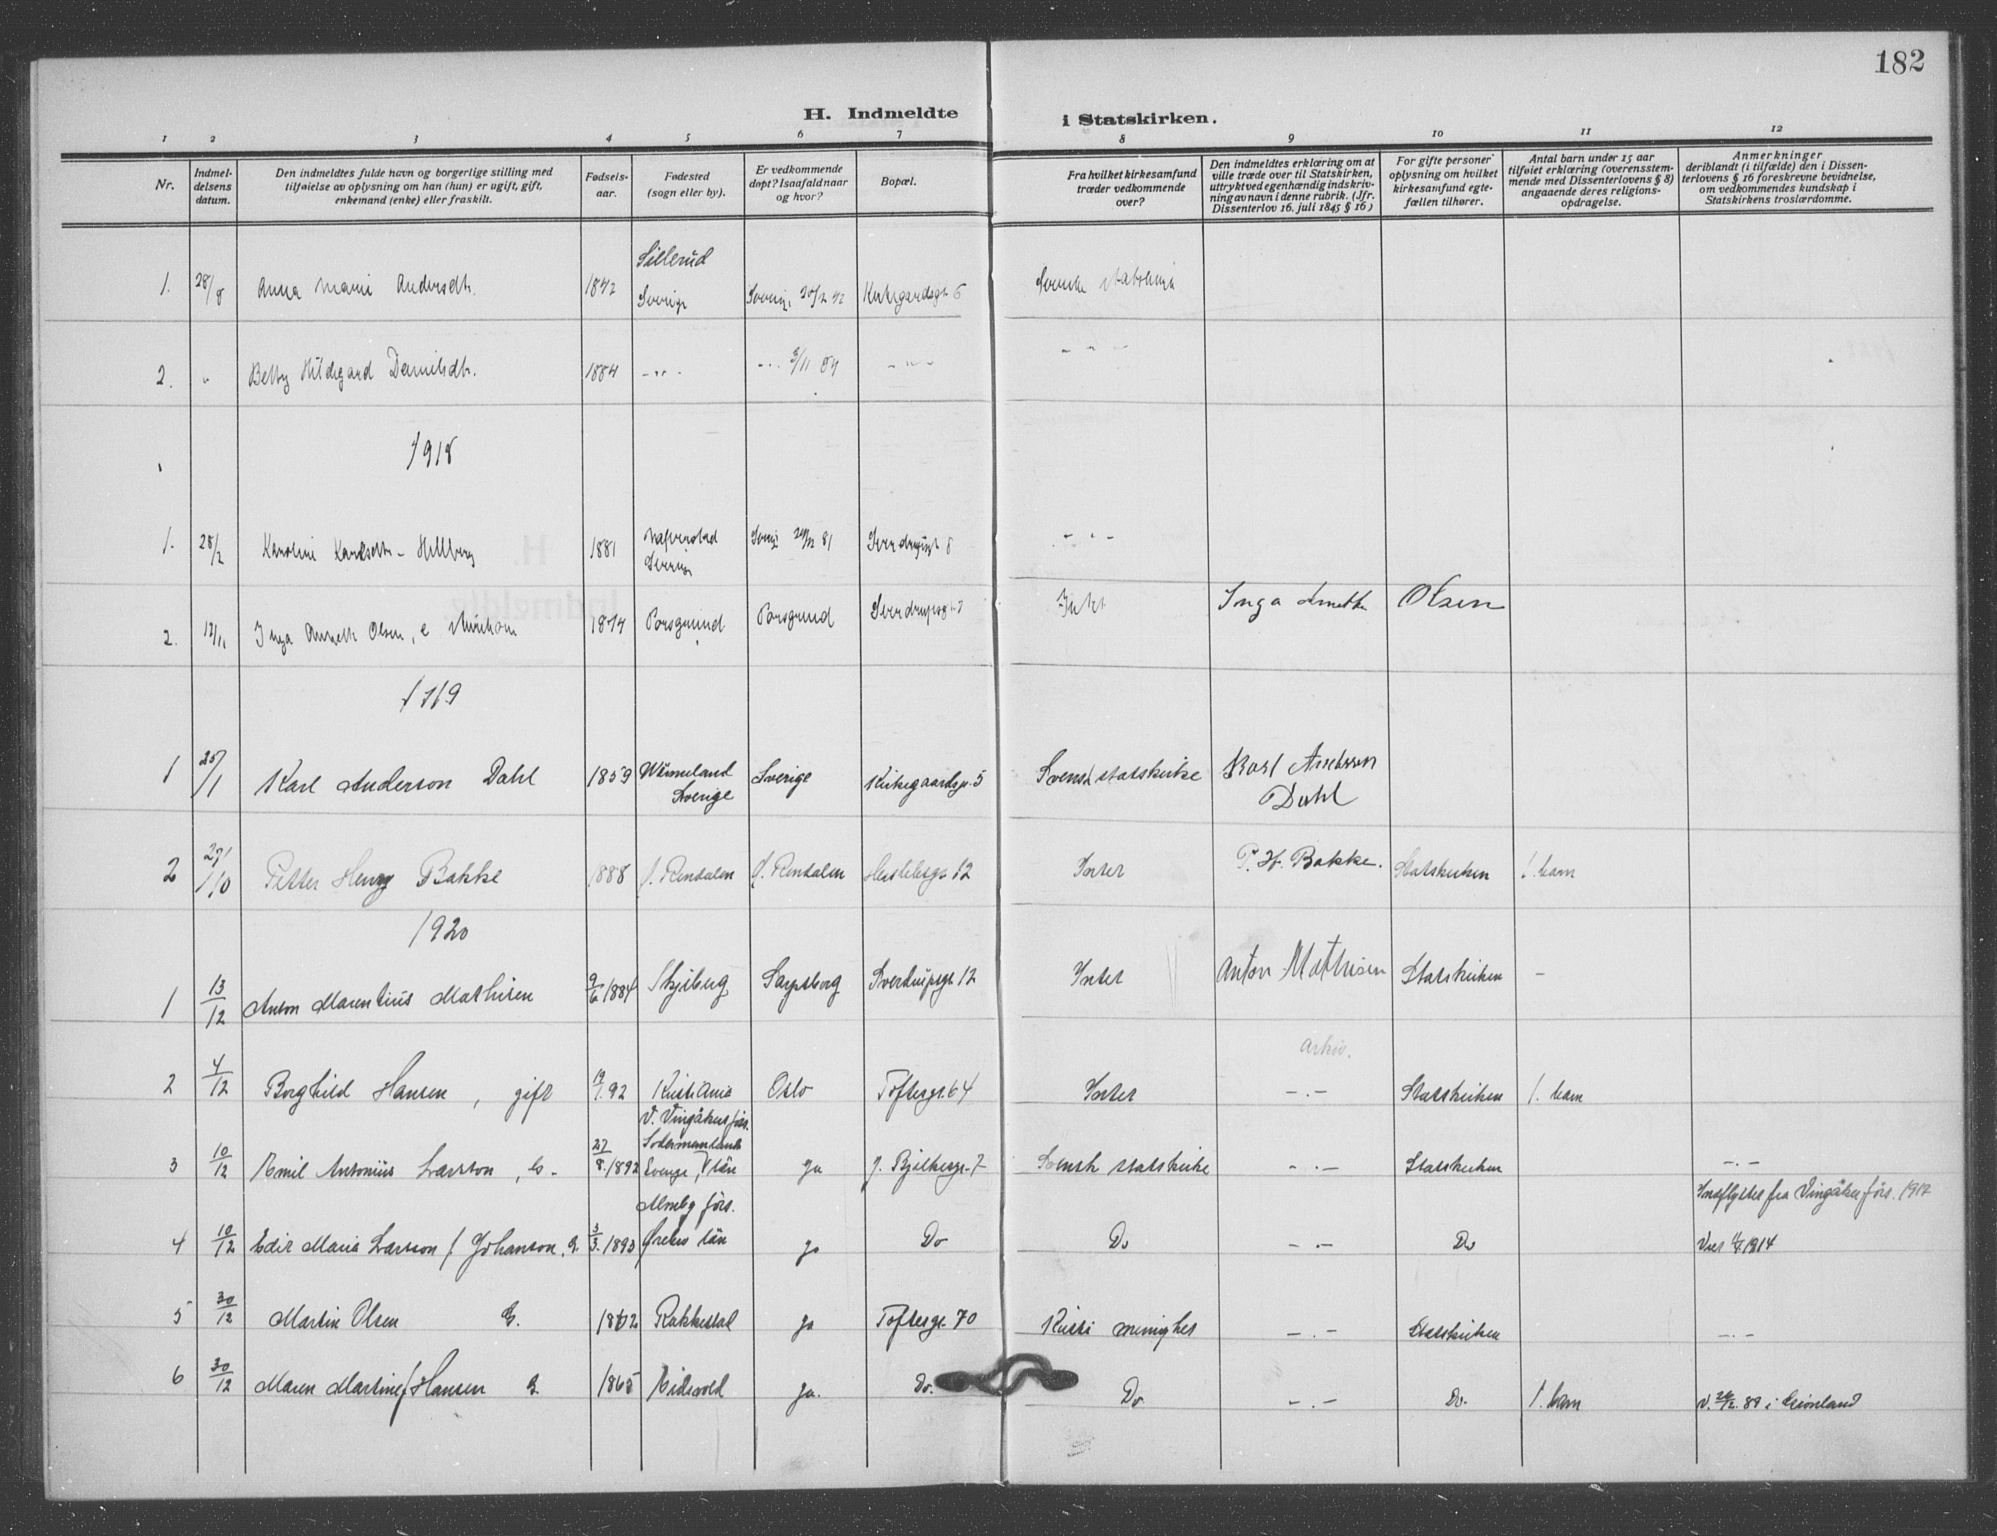 182
H. Indmeldte i Statskirken.
1 2 3 4 5 6 7 8 9 10 11 12
Nr.
Indmel-
delsens
datum.
Den indmeldtes fulde navn og borgerlige stilling med
tilføielse av oplysning om han (hun) er ugift, gift,
enkemand (enke) eller fraskilt.
Fødsels-
aar.
Fødested
(sogn eller by).
Er vedkommende
døpt? Isaafald naar
og hvor?
Bopæl.
Fra hvilket kirkesamfund
træder vedkommende
over?
Den indmeldtes erklæring om at
ville træde over til Statskirken,
uttrykt ved egenhændig indskriv-
ning av navn i denne rubrik. (Jfr.
Dissenterlov 16. juli 1845 § 16)
For gifte personer
oplysning om hvilket
kirkesamfund egte-
fællen tilhører.
Antal barn under 15 aar
tilføiet erklæring (overensstem-
mende med Dissenterlovens § 8)
angaaende deres religions-
opdragelse.
Anmerkninger
deriblandt (i tilfælde) den i Dissen-
terlovens § 16 foreskrevne bevidnelse,
om vedkommendes kundskap i
Statskirkens troslærdomme.
Sillerud
1. 28/8 Anna Marie Andersdtr. 1842 Sverige Sverige 20/2 42 Kirkegardsgt 5 Svenske statskirke
2. " Betsy Hildegard Danielsdtr. 1884 -"- -"- 3/11 84 -"- -"-
1918
1. 28/2 Karoline Karlsdtr - Hellberg 1881 Nafverstad Sverige 81 Sverdrupsgt 8 -"-
Sverige
2. 12/11 Inga Annette Olsen, e 1874 Porsgrund Porsgrund Sverdrupsgt Intet Inga Anette Olsen
1919
1 25/1 Karl Anderson Dahl 1859 Wärmeland Sverige Kirkegaardsgt. 5 Svensk statskirke Karl Andersson
Sverige Dahl
2 29/10 Petter Henry Bakke 1888 Ø. Rendalen Ø. Rendalen Heslebsgt. 12 Intet P. H. Bakke. Statskirken 1. barn
1920
1 13/12 Anton Marentius Mathisen 9/6 1884 Skjeberg Sarpsborg Sverdrupsgt. 12 Intet Anton Mathisen Statskirken -
arkiv.
2 4/12 Borghild Hansen, gift 19/1. 92 Kristiania Oslo Toftesgt. 64 Intet -.- Statskirken 1. barn
V. Vingåkers förs.
Södermanlands
3 10/12 Emil Antonius Larsson, G. 27/8. 1892 Sverige, län ja J. Bjelkesgt. 7 Svensk statskirke -.- Statskirken -.-
Indflyttet fra Vingåker förs. 1912
Almby förs.
4 10/12 Edit Maria Larsson f Johanson, G. 3/3. 1893 Ørebro län ja Do Do -.- Do Viet 1914
5 30/12 Martin Olsen G. 1862 Rakkestad ja Toftesgt. 70 Kristi menighet -.- Statskirken -.-
6 30/12 Maren Martine f Hansen G. 1865 Eidsvold ja. Do. Do -.- Do. 1. barn V. 26/12. 89 i Grønland